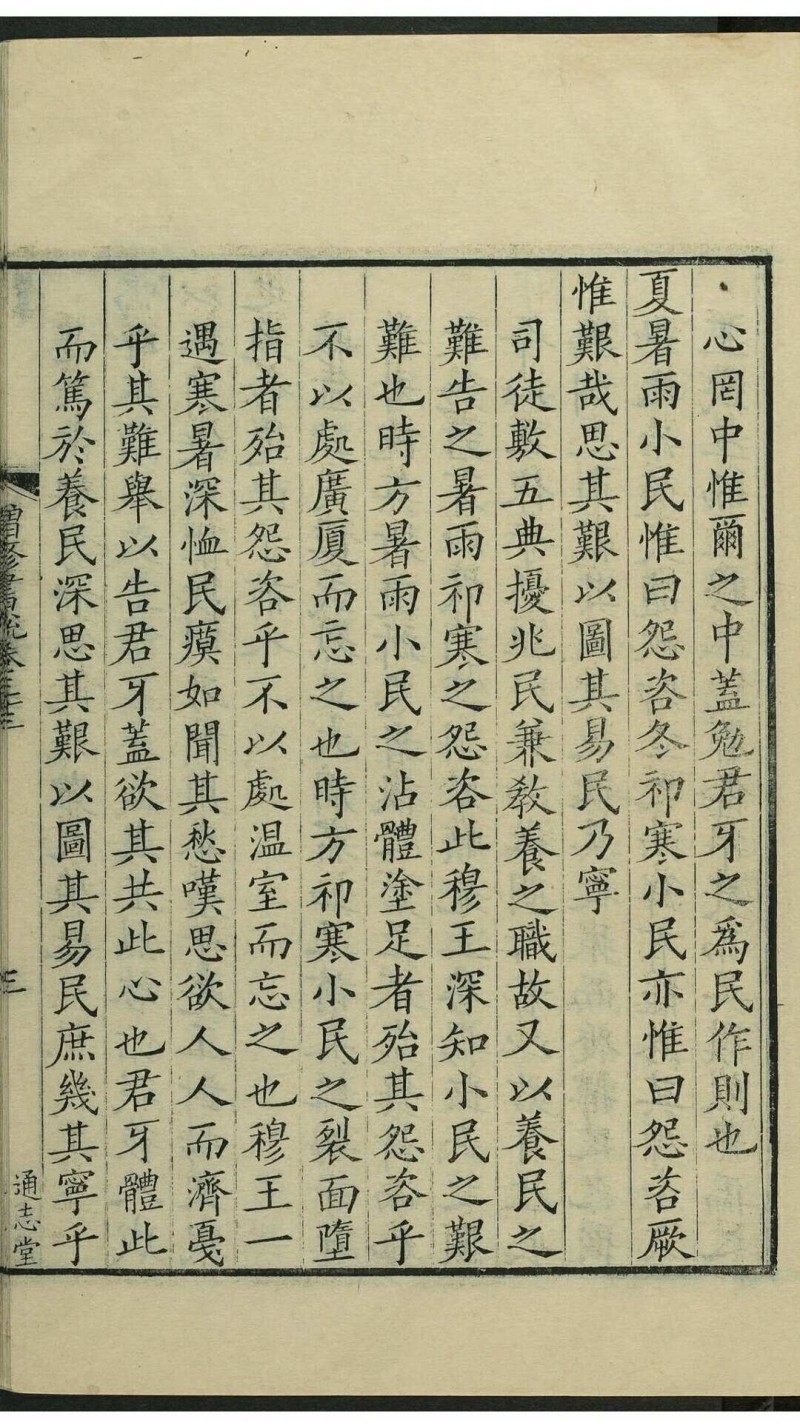 心罔中惟爾之中蓋勉君牙之爲民作則也
夏暑雨小民惟曰怨咨冬祁寒小民亦惟曰怨咨厥
惟艱哉思其艱以圖其易民乃寧
司徒敷五典擾兆民兼敎養之職故又以養民之
難告之暑雨祁寒之怨咨此穆王深知小民之艱
難也時方暑雨小民之沾體塗足者殆其怨咨乎
不以處廣厦而忘之也時方祁寒小民之裂面墮
指者殆其怨咨乎不以處温室而忘之也穆王一
遇寒暑深恤民瘼如聞其愁嘆思欲人人而濟憂
乎其難舉以告君牙蓋欲其共此心也君牙體此
而篤於養民深思其艱以圖其易民庶幾其寧乎
增修書說卷三十三
三
通志堂